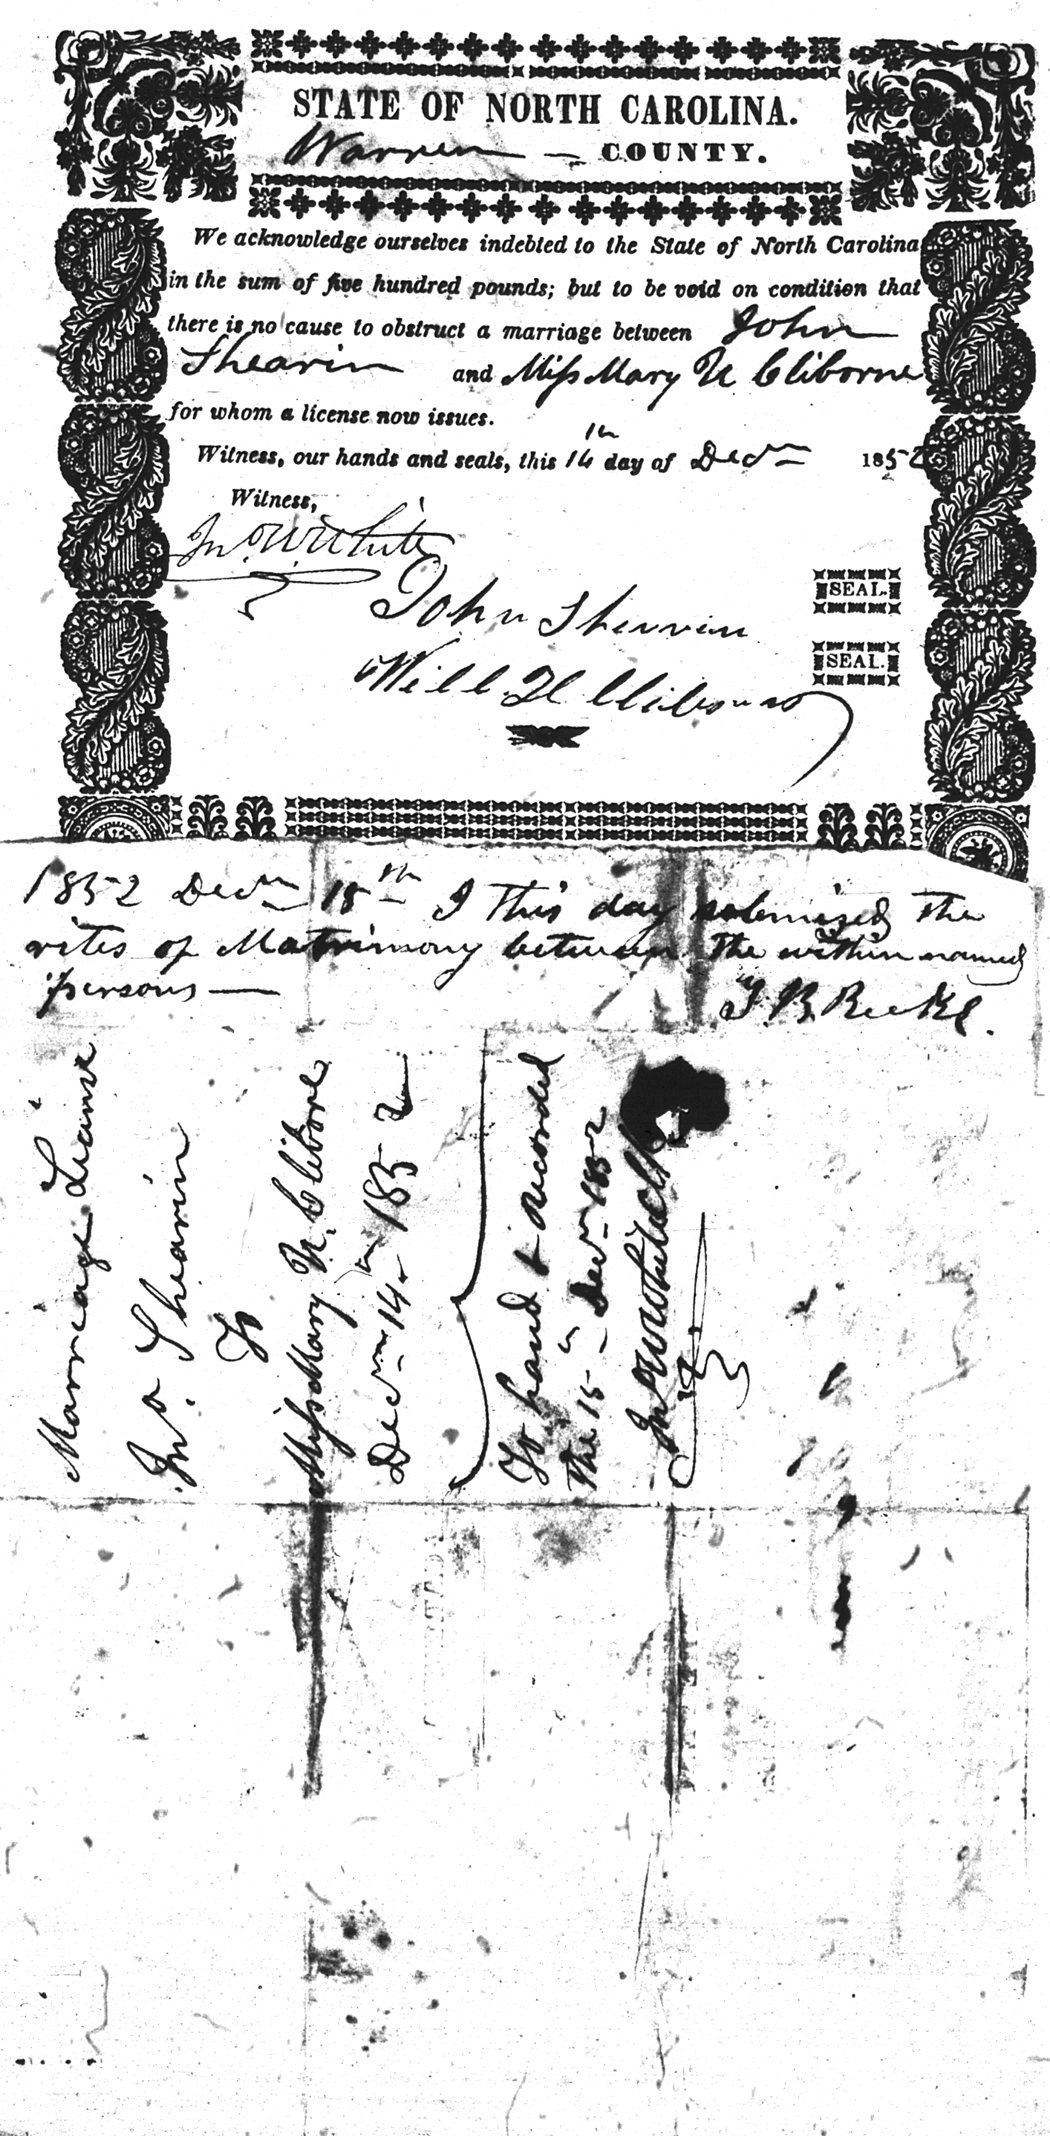 STATE OF NORTH CAROLINA.
Warren — COUNTY.
We acknowledge ourselves indebted to the State of North Carolina
in the sum of five hundred pounds; but to be void on condition that
there is no cause to obstruct a marriage between John
Shearin and Miss Mary N Cliborne
for whom a license now issues.
Witness, our hands and seals, this 14th day of Decm 1852
Witness,
Jno W White
John Shearin SEAL.
Will H Cliborne SEAL.
1852 Decm 15th I this day solemised the
rites of Matrimony between the within named
persons —
Marriage License
Jno Shearin
To
Miss Mary N. Cliborne
Decm 14th 1852
To hand & recorded
the 15th Decm 1852
Jno W White Clk